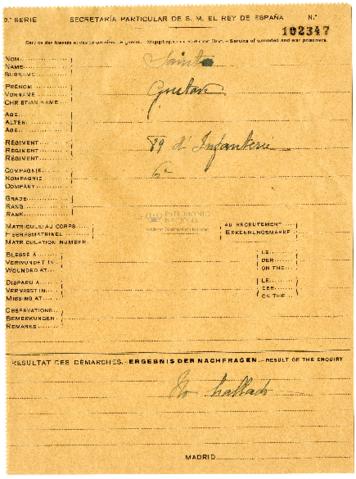 0.ª SERIE SECRETARÍA PARTICULAR DE S. M. EL REY DE ESPAÑA N.º
102347
NOM
NAME
SURNAME
PRÉNOM
VORNAME
CHRISTIAN NAME
Gustave
AGE
ALTER
AGE
RÉGIMENT
REGIMENT
REGIMENT
89 d'Infanterie
COMPAGNIE
KOMPAGNIE
COMPANY
6e
GRADE
RANG
RANK
PATRIMONIO NACIONAL
MATRICULE AU CORPS
MATRICULATION NUMBER
AU RECRUTEMENT
ERKENNUNGSMARKE
BLESSÉ A
VERWUNDET IN
WOUNDED AT
LE
DER
ON THE
DISPARU A
VERMISST IN
MISSING AT
LE
DER
ON THE
OBSERVATIONS
BEMERKUNGEN
REMARKS
RESULTAT DES DÉMARCHES.—ERGEBNIS DER NACHFRAGEN.—RESULT OF THE ENQUIRY
No hallado
MADRID